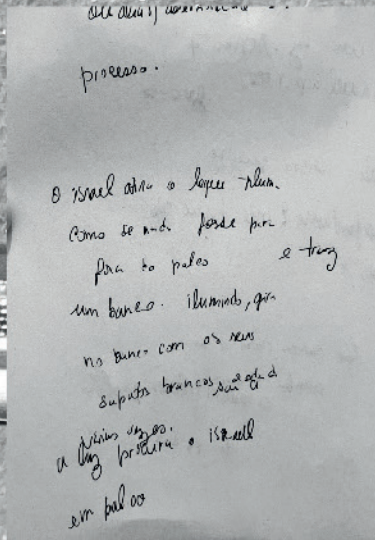 processo.
O israel atira o leque
como se nada fosse para
fora do palco e traz
um banco. iluminado, gira
no banco com os seus
sapatos brancos
várias vezes.
a luz procura o israel
em palco